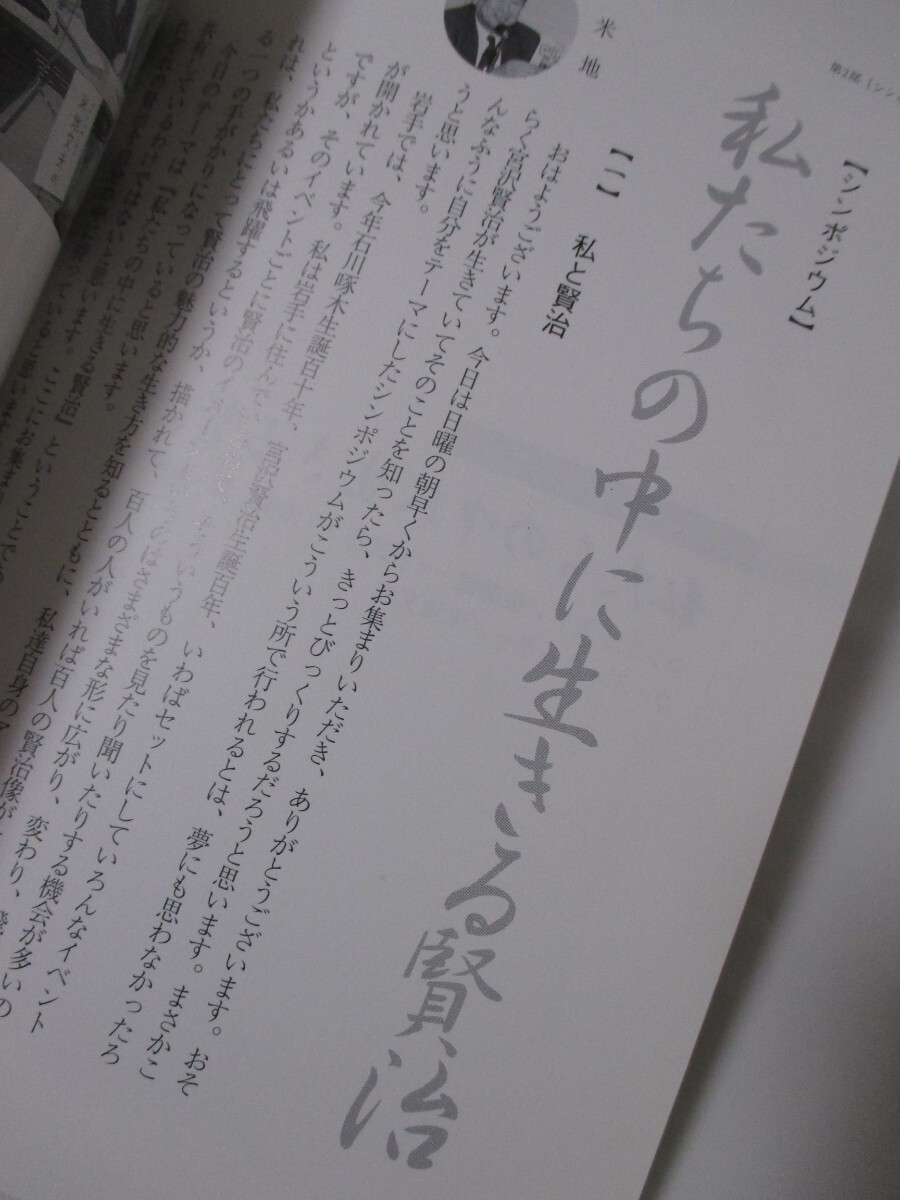 第2部
【シンポジウム】
私たちの中に生きる賢治
【一】 私と賢治
米地
おはようございます。今日は日曜の朝早くからお集まりいただき、ありがとうございます。おそ
らく宮沢賢治が生きていてそのことを知ったら、きっとびっくりするだろうと思います。まさかこ
んなふうに自分をテーマにしたシンポジウムがこういう所で行われるとは、夢にも思わなかったろ
うと思います。
岩手では、今年石川啄木生誕百十年、宮沢賢治生誕百年、いわばセットにしていろんなイベント
が開かれています。私は岩手に住んで
ものを見たり聞いたりする機会が多いの
ですが、そのイベントごとに賢治のイ
のはさまざまな形に広がり、変わり、
というかあるいは飛躍するというか、描かれて、百人の人がいれば百人の賢治像が
れは、私たちにとって賢治の魅力的な生き方を知るとともに、私達自身の
る一つの手がかりになっていると思います。
今日のテーマは『私たちの中に生きる賢治』ということで
ここにお集まり
ではないと思います。
ていると思います